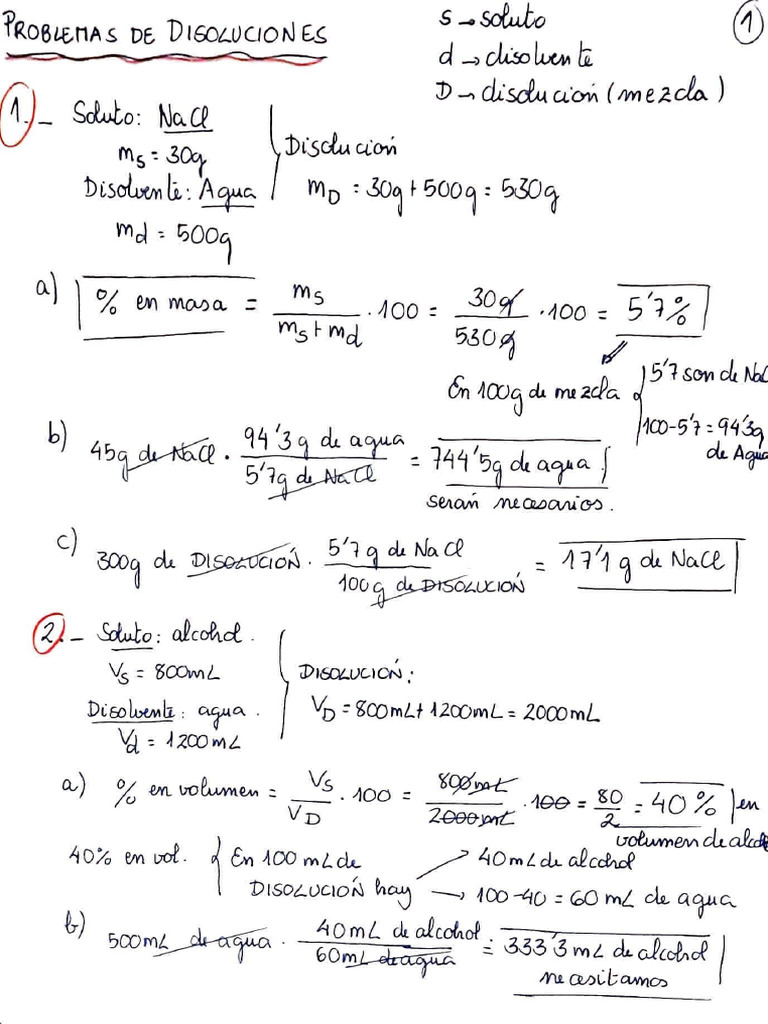 PROBLEMAS DE DISOLUCIONES
s → soluto
1
d → disolvente
D → disolución (mezcla)
1._ Soluto: NaCl
ms = 30g
Disolvente: Agua
md = 500g
Disolución
mD = 30g + 500g = 530g
a) % en masa = ms / (ms + md) · 100 = 30g / 530g · 100 = 5'7%
En 100g de mezcla
5'7 son de NaCl
100-5'7 = 94'3g
de Agua
b) 45g de NaCl · 94'3g de agua / 5'7g de NaCl = 744'5g de agua
serán necesarios.
c) 300g de DISOLUCIÓN · 5'7 g de NaCl / 100g de DISOLUCIÓN = 17'1 g de NaCl
2._ Soluto: alcohol.
Vs = 800mL
Disolvente: agua.
Vd = 1200mL
DISOLUCIÓN:
VD = 800mL + 1200mL = 2000mL
a) % en volumen = Vs / VD · 100 = 800mL / 2000mL · 100 = 80 / 2 = 40% en
volumen de alcohol
40% en vol.
En 100 mL de
DISOLUCIÓN hay
40mL de alcohol
→ 100-40 = 60 mL de agua
b) 500mL de agua · 40mL de alcohol / 60mL de agua = 333'3 mL de alcohol
necesitamos